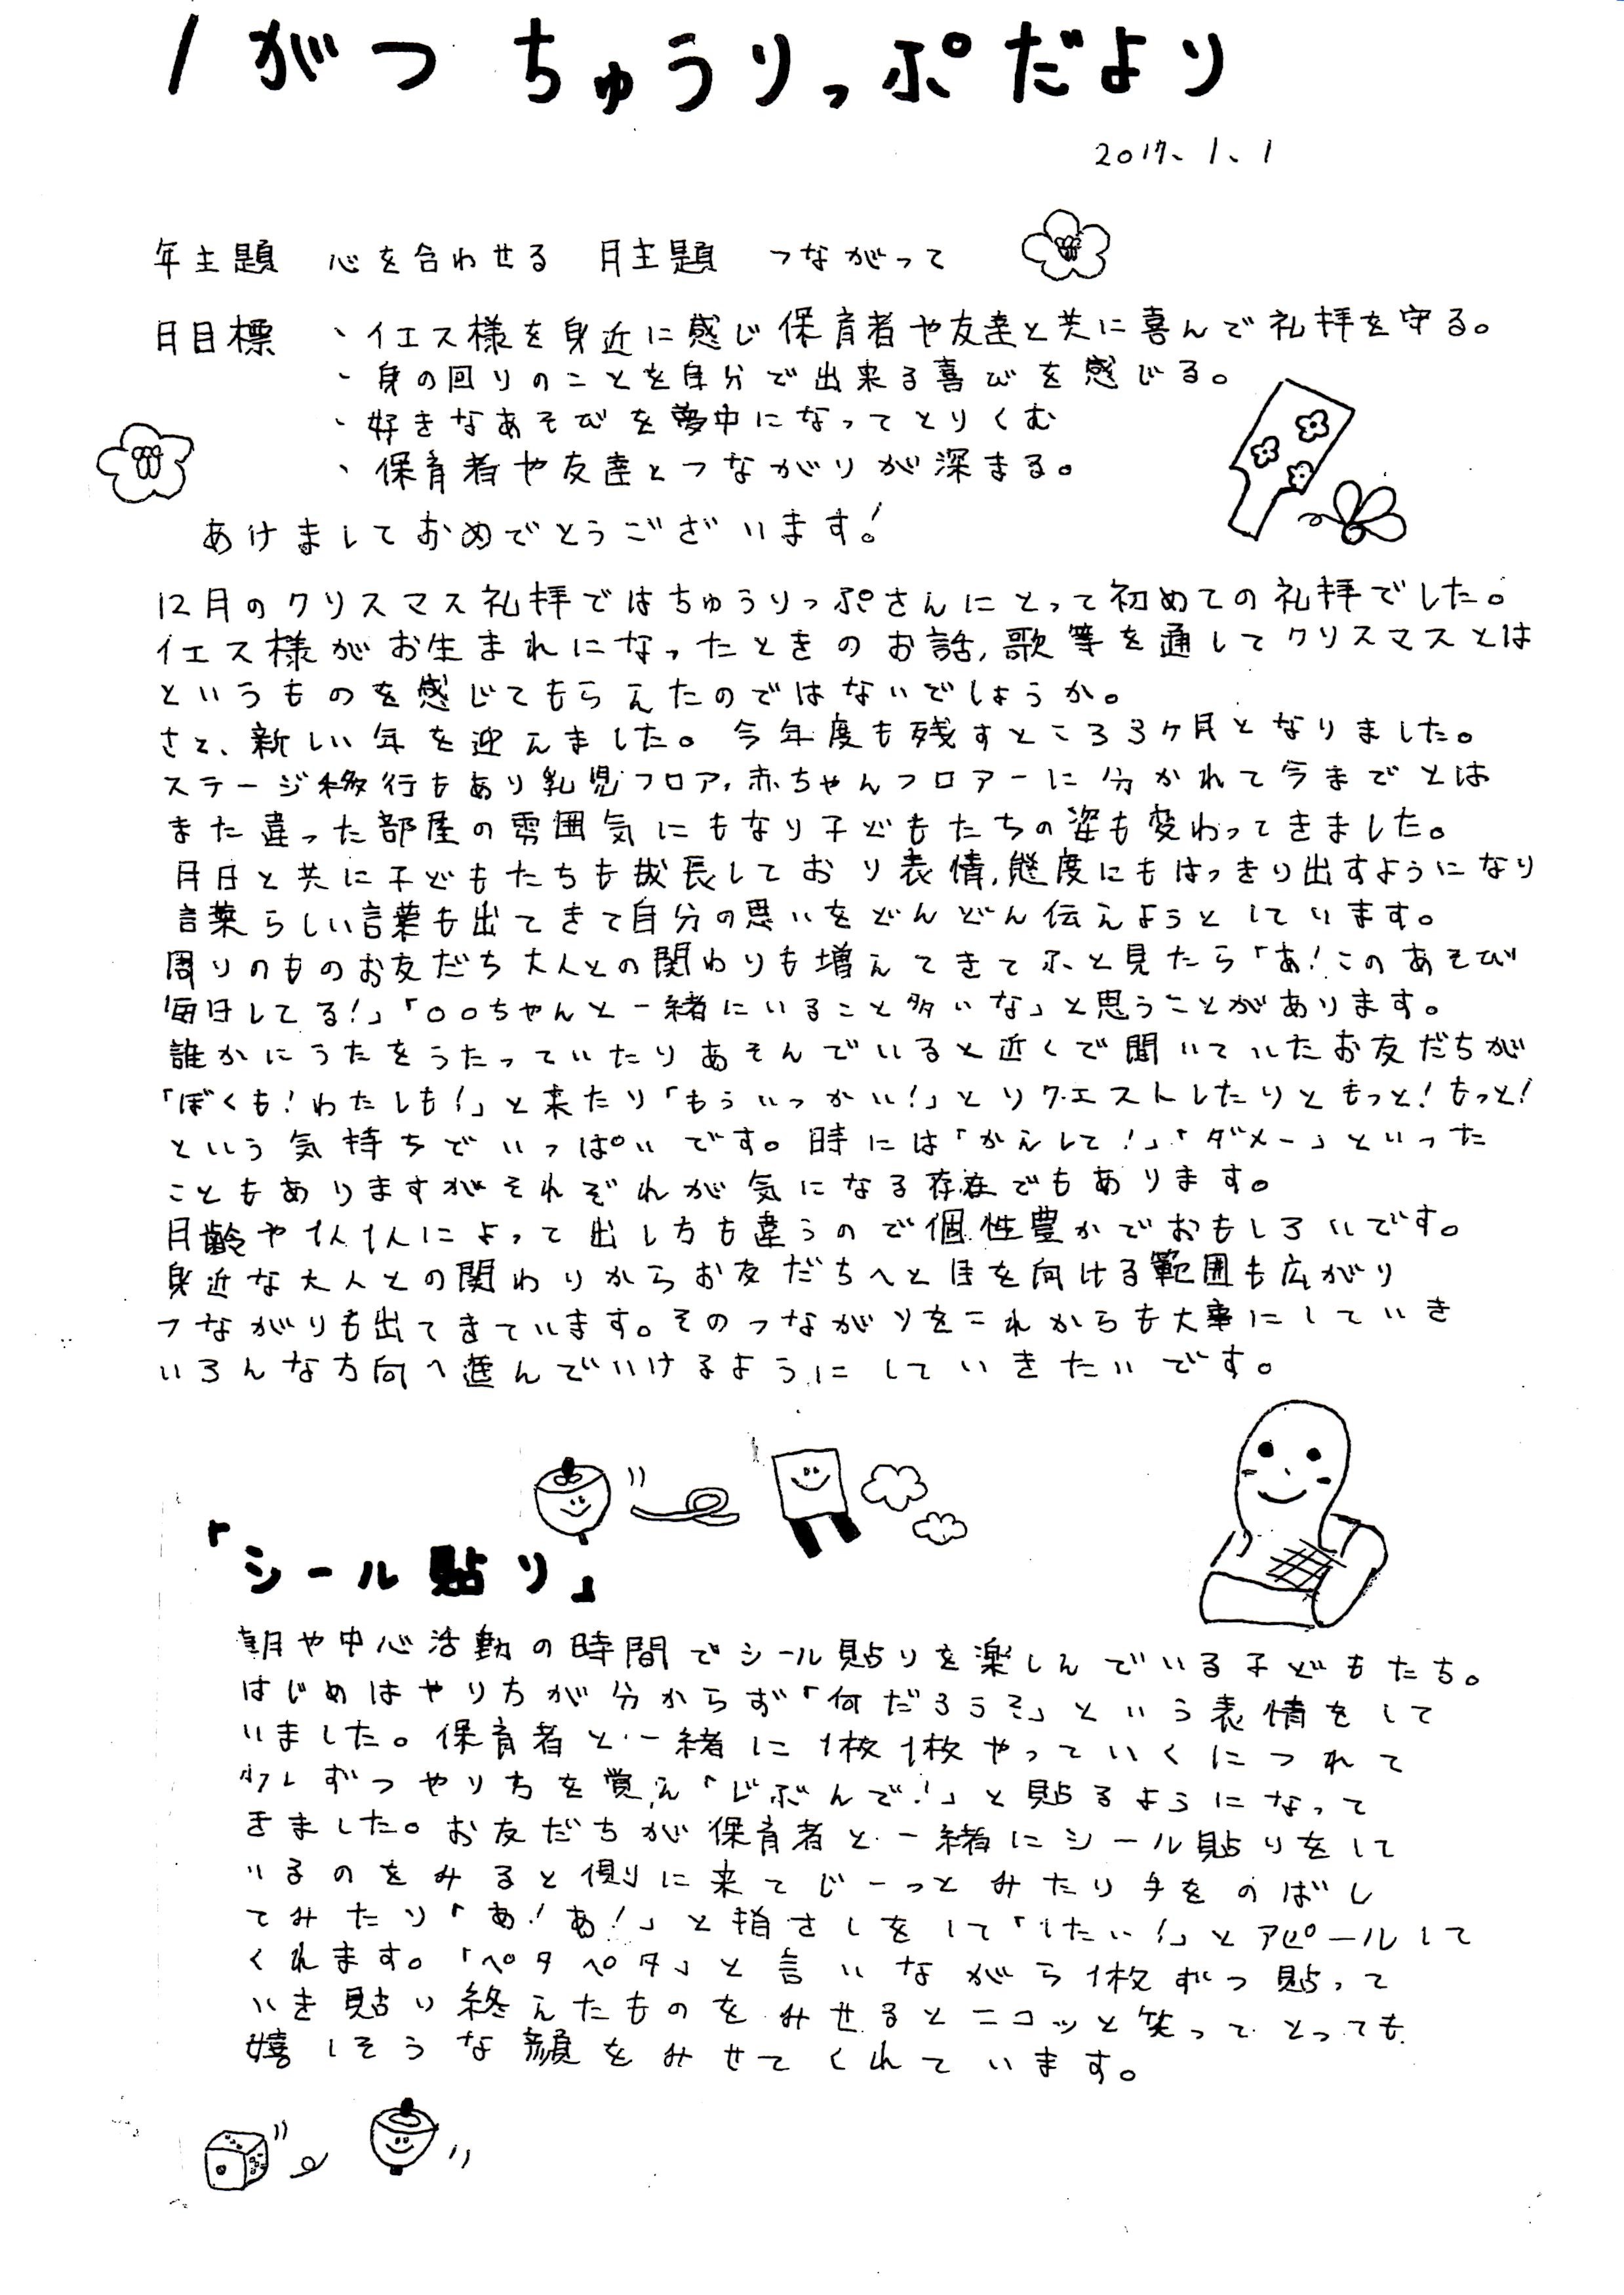 1がつ ちゅうりっぷだより
2017、1、1
年主題　心を合わせる　月主題　つながって
月目標　、イエス様を身近に感じ保育者や友達と共に喜んで礼拝を守る。
、身の回りのことを自分で出来る喜びを感じる。
、好きなあそびを夢中になってとりくむ
、保育者や友達とつながりが深まる。
あけましておめでとうございます!
12月のクリスマス礼拝ではちゅうりっぷさんにとって初めての礼拝でした。
イエス様がお生まれになったときのお話,歌等を通してクリスマスとは
というものを感じてもらえたのではないでしょうか。
さて、新しい年を迎えました。今年度も残すところ3ヶ月となりました。
ステージ移行もあり乳児フロア,赤ちゃんフロアーに分かれて今までとは
また違った部屋の雰囲気にもなり子どもたちの姿も変わってきました。
月日と共に子どもたちも成長しており表情,態度にもはっきり出すようになり
言葉らしい言葉も出てきて自分の思いをどんどん伝えようとしています。
周りのものお友だち大人との関わりも増えてきてふと見たら「あ!このあそび
毎日してる!」「○○ちゃんと一緒にいること多いな」と思うことがあります。
誰かにうたをうたっていたりあそんでいると近くで聞いていたお友だちが
「ぼくも!わたしも!」と来たり「もういっかい!」とリクエストしたりともっと!もっと!
という気持ちでいっぱいです。時には「かえして!」「ダメー」といった
こともありますがそれぞれが気になる存在でもあります。
月齢や1人1人によって出し方も違うので個性豊かでおもしろいです。
身近な大人との関わりからお友だちへと目を向ける範囲も広がり
つながりも出てきています。そのつながりをこれからも大事にしていき
いろんな方向へ進んでいけるようにしていきたいです。
「シール貼り」
朝や中心活動の時間でシール貼りを楽しんでいる子どもたち。
はじめはやり方が分からず「何だろうぞ」という表情をして
いました。保育者と一緒に1枚1枚やっていくにつれて
少しずつやり方を覚え「じぶんで!」と貼るようになって
きました。お友だちが保育者と一緒にシール貼りをして
いるのをみると側に来てじーっとみたり手をのばし
てみたり「あ!あ!」と指さしをして「したい!」とアピールして
くれます。「ペタペタ」と言いながら1枚ずつ貼って
いき貼り終えたものをみせるとニコッと笑ってとっても
嬉しそうな顔をみせてくれています。